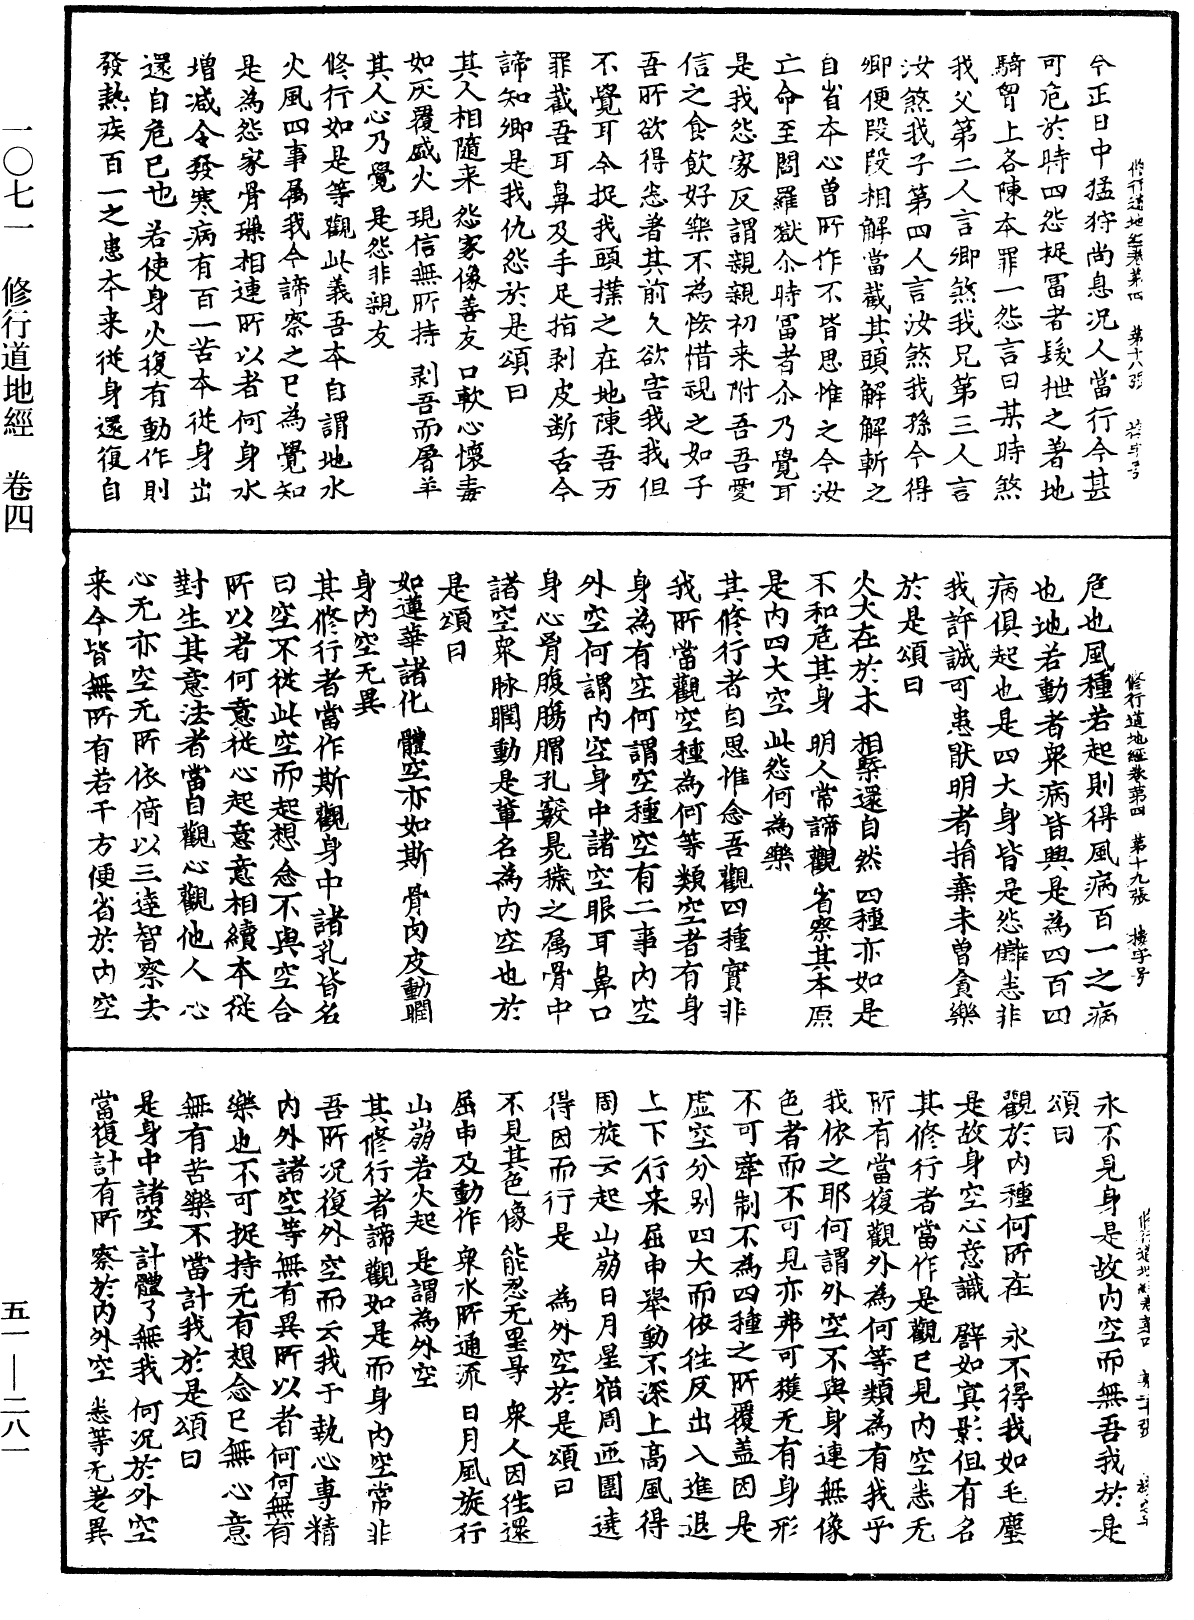 一〇七一　修行道地經　卷四
修行道地經卷第四　第十八張
今正日中猛狩尚息况人當行今甚
可危於時四怨捉冨者髮抴之著地
騎𦚾上各陳本罪一怨言曰某時煞
我父第二人言卿煞我兄第三人言
汝煞我子第四人言汝煞我孫今得
卿便段段相解當截其頭解解斬之
自省本心曾所作不皆思惟之今汝
亡命至閻羅獄尒時冨者尒乃覺耳
是我怨家反謂親親初来附吾吾愛
信之食飲好樂不為悋惜視之如子
吾所欲得悉著其前久欲害我我但
不覺耳今捉我頭撲之在地陳吾万
罪截吾耳鼻及手足指剥皮断舌今
諦知卿是我仇怨於是頌曰
其人相隨来　怨家像善友　口軟心懷毒
如灰覆盛火　現信無所持　剥吾而屠羊
其人心乃覺　是怨非親友
修行如是等觀此義吾本自謂地水
火風四事属我今諦察之已為覺知
是為怨家骨璅相連所以者何身水
增减令發寒病有百一苦本從身出
還自危己也　若使身火復有動作則
發熱疾百一之患本来從身還復自
修行道地經卷第四　第十九張　樓字号
危也風種若起則得風病百一之病
也地若動者衆病皆興是為四百四
病俱起也是四大身皆是怨讎悉非
我許誠可患猒明者捐棄未曾貪樂
於是頌曰
火大在於木　相䦧還自然　四種亦如是
不和危其身　明人常諦觀　省察其本原
是內四大空　此怨何為樂
其修行者自思惟念吾觀四種實非
我所當觀空種為何等類空者有身
身為有空何謂空種空有二事內空
外空何謂內空身中諸空眼耳鼻口
身心胷腹膓胃孔竅臰穢之属骨中
諸空衆脉瞤動是輩名為內空也於
是頌曰
如蓮華諸化　體空亦如斯　骨肉皮動瞤
身內空无異
其修行者當作斯觀身中諸孔皆名
曰空不從此空而起想念不與空合
所以者何意從心起意意相續本從
對生其意法者當自觀心觀他人心
心无亦空无所依倚以三達智察去
来今皆無所有若干方便省於內空
永不見身是故內空而無吾我於是
頌曰
觀於內種何所在　永不得我如毛塵
是故身空心意識　譬如寘影但有名
其修行者當作是觀已見內空悉无
所有當復觀外為何等類為有我乎
我依之耶何謂外空不與身連無像
色者而不可見亦弗可獲无有身形
不可牽制不為四種之所覆盖因是
虛空分别四大而依往反出入進退
上下行来屈申舉動不深上高風得
周旋云起山崩日月星宿周匝圍遶
得因而行是　為外空於是頌曰
不見其色像　能忍无罣㝵　衆人因往還
屈申及動作　衆水所通流　日月風旋行
山崩若火起　是謂為外空
其修行者諦觀如是而身內空常非
吾所况復外空而云我于執心專精
內外諸空等無有異所以者何何無有
樂也不可捉持无有想念已無心意
無有苦樂不當計我於是頌曰
是身中諸空　計體了無我　何况於外空
當復計有所　察於內外空　悉等无差異
五一—二八一